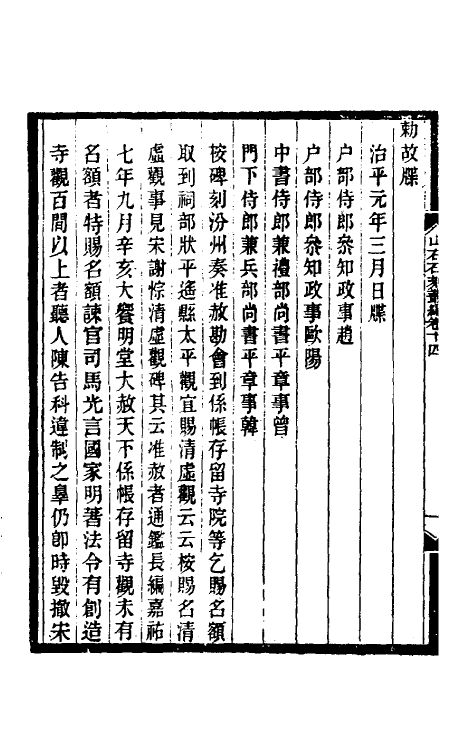 勅故牒
治平元年三月日牒
户部侍郎叅知政事趙
户部侍郎叅知政事歐陽
中書侍郎兼禮部尚書平章事曾
門下侍郎兼兵部尚書平章事韓
桉碑刻汾州奏准赦勘會到係帳存留寺院等乞賜名額
取到祠部狀平遙縣太平觀宜賜清虛觀云云桉賜名清
虛觀事見宋謝悰清虛觀碑其云准赦者通鑑長編嘉祐
七年九月辛亥大饗明堂大赦天下係帳存留寺觀未有
名額者特賜名額諫官司馬光言國家明著法令有創造
寺觀百間以上者聽人陳告科違制之辠仍卽時毀撤宋
山右石刻叢編卷十四